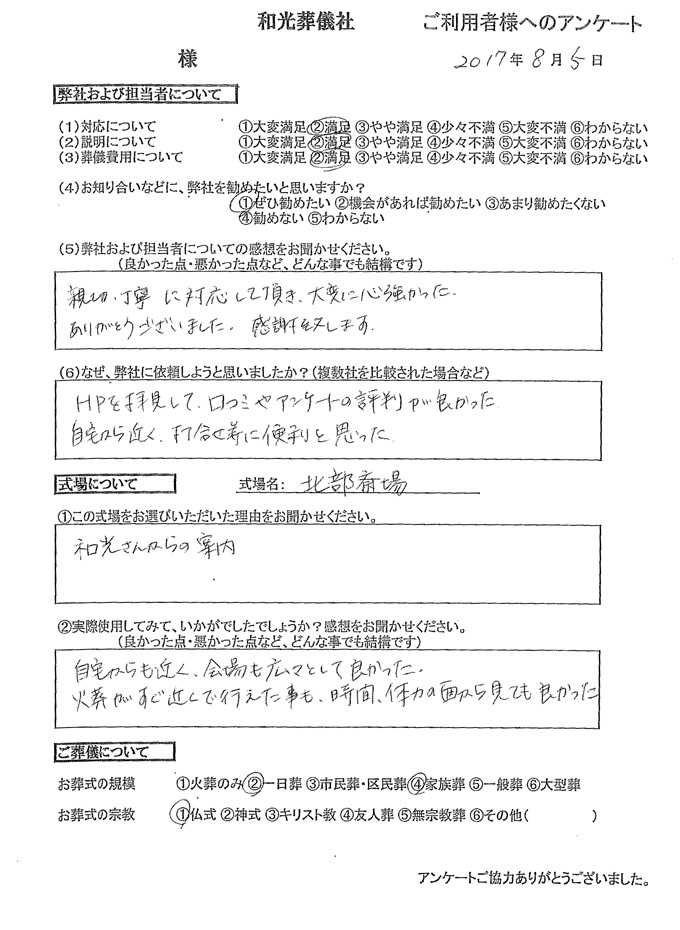 和光葬儀社 ご利用者様へのアンケート
様 2017年8月5日
弊社および担当者について
(1)対応について ①大変満足 ②満足 ③やや満足 ④少々不満 ⑤大変不満 ⑥わからない
(2)説明について ①大変満足 ②満足 ③やや満足 ④少々不満 ⑤大変不満 ⑥わからない
(3)葬儀費用について ①大変満足 ②満足 ③やや満足 ④少々不満 ⑤大変不満 ⑥わからない
(4)お知り合いなどに、弊社を勧めたいと思いますか?
①ぜひ勧めたい ②機会があれば勧めたい ③あまり勧めたくない
④勧めない ⑤わからない
(5)弊社および担当者についての感想をお聞かせください。
(良かった点・悪かった点など、どんな事でも結構です)
親切、丁寧に対応して頂き、大変に心強かった。
ありがとうございました。感謝致します。
(6)なぜ、弊社に依頼しようと思いましたか?(複数社を比較された場合など)
HPを拝見して、口コミやアンケートの評判が良かった
自宅から近く、打合せ等に便利と思った。
式場について 式場名: 北部斎場
①この式場をお選びいただいた理由をお聞かせください。
和光さんからの案内
②実際使用してみて、いかがでしたでしょうか?感想をお聞かせください。
(良かった点・悪かった点など、どんな事でも結構です)
自宅からも近く、会場も広々として良かった。
火葬がすぐ近くで行えた事も、時間、体力の面から見ても良かった
ご葬儀について
お葬式の規模 ①火葬のみ ②一日葬 ③市民葬・区民葬 ④家族葬 ⑤一般葬 ⑥大型葬
お葬式の宗教 ①仏式 ②神式 ③キリスト教 ④友人葬 ⑤無宗教葬 ⑥その他( )
アンケートご協力ありがとうございました。